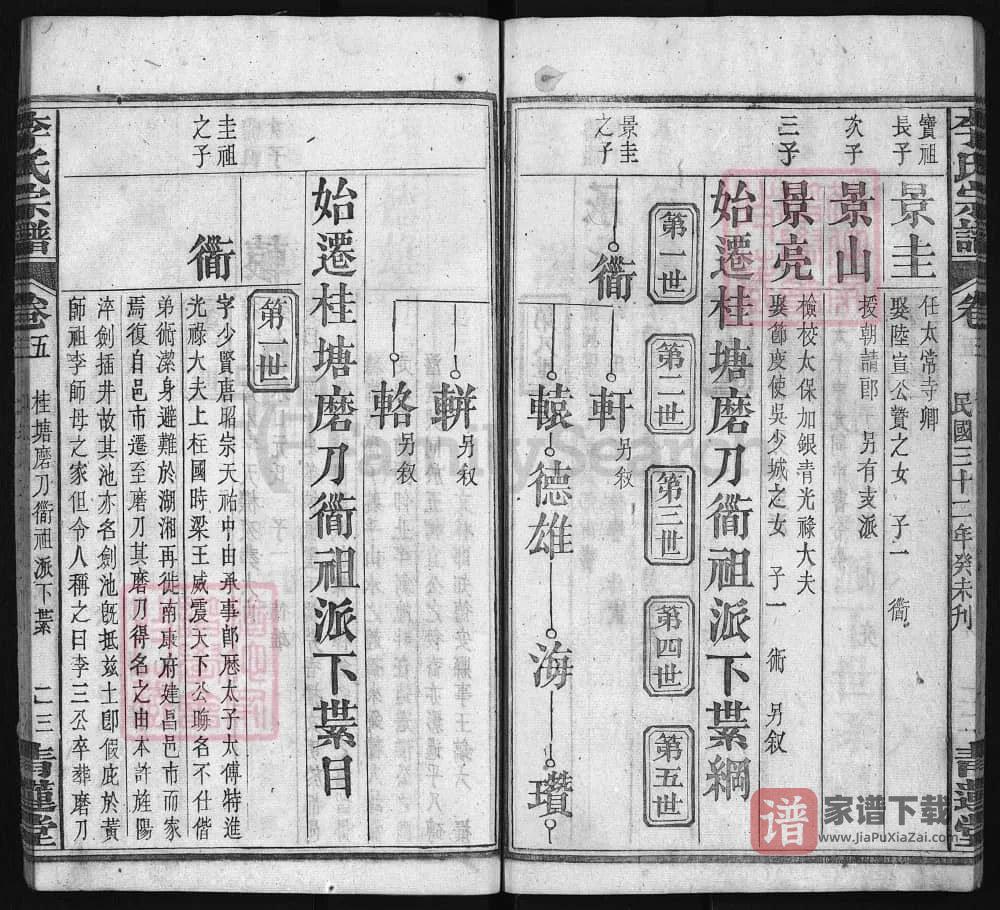 李氏宗譜
卷五
民國三十二年癸未刊
青蓮堂
寶祖
長子
景圭
任太常寺卿
娶陸宣公贄之女 子一 衢
次子
景山
援朝請郎 另有支派
三子
景亮
檢校太保加銀青光祿大夫
娶節度使吳少城之女 子一 術 另敘
始遷桂塘磨刀衢祖派下葉綱
第一世
第二世
第三世
第四世
第五世
景圭
之子
衢
軒
另敘
轅
德雄
海
瓚
輧
另敘
輅
另敘
始遷桂塘磨刀衢祖派下葉目
第一世
圭祖
之子
衢
字少賢唐昭宗天祐中由承事郎歷太子太傅特進
光祿大夫上柱國時梁王威震天下公聯名不仕偕
弟術潔身避難於湖湘再徙南康府建昌邑市而家
焉復自邑市遷至磨刀其磨刀得名之由本許旌陽
淬劍插井故其池亦名劍池既抵茲土卽假庇於黃
師祖李師母之家但令人稱之曰李三公卒葬磨刀
李氏宗譜
卷五
桂塘磨刀衢祖派下葉
二三
青蓮堂
FamilySearch
谱
家谱下载
www.JiaPuXiaZai.com